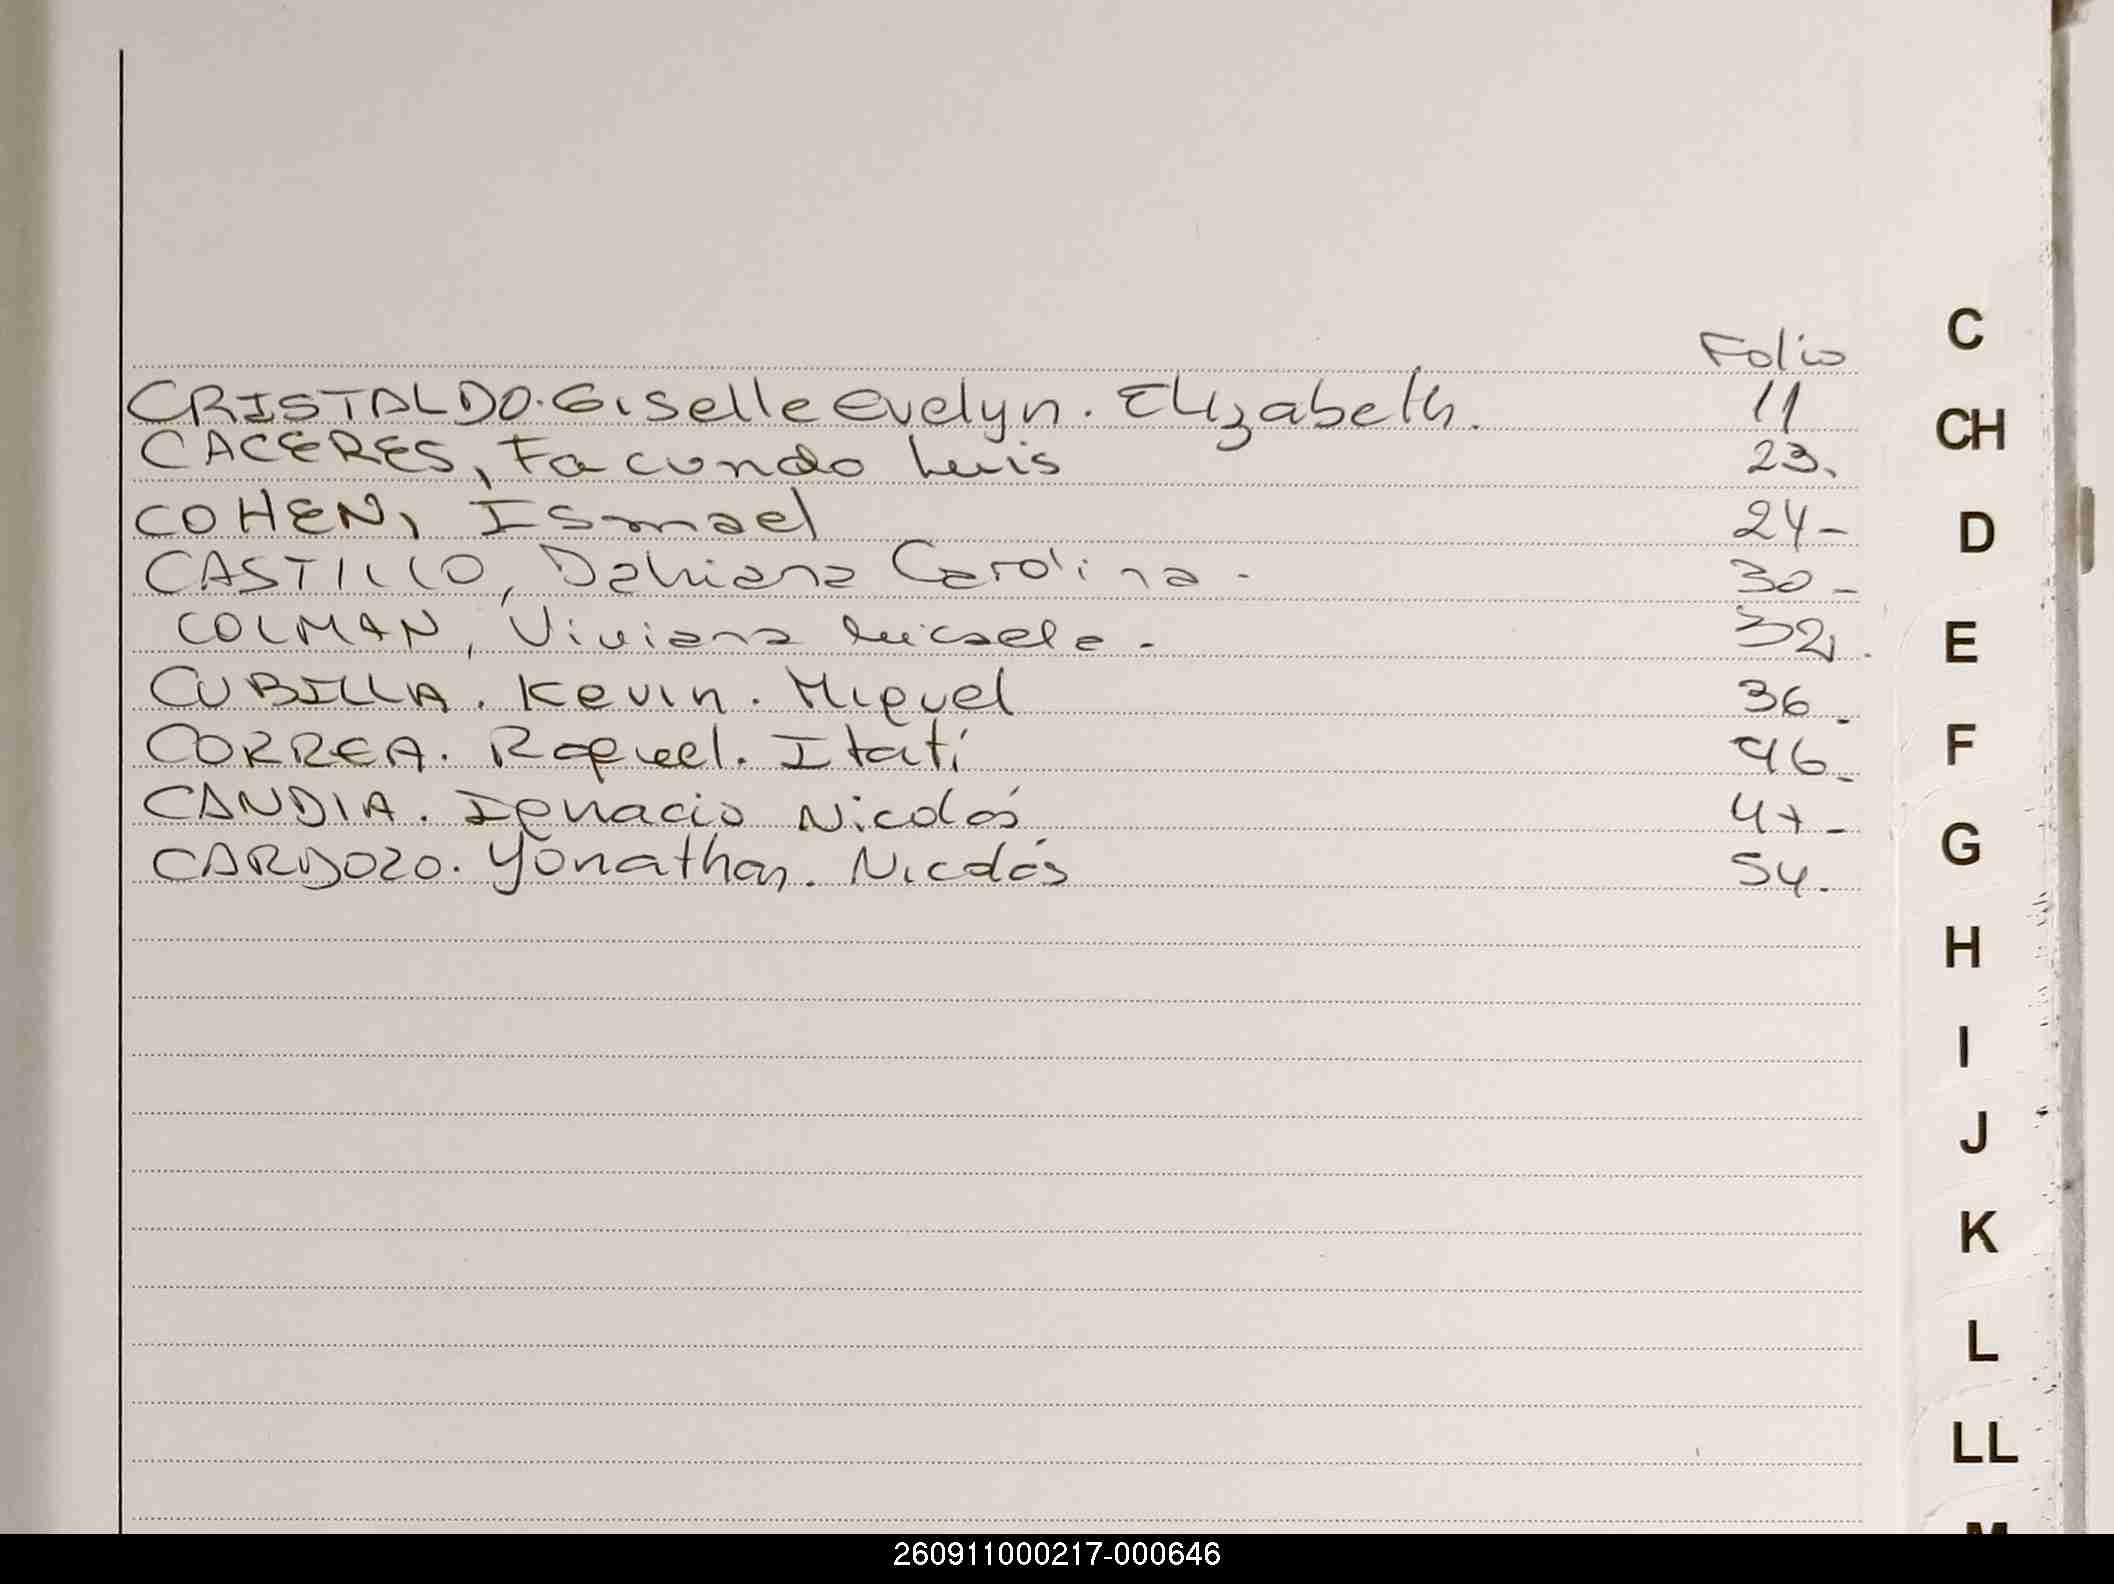 Folio
CRISTALDO. Giselle Evelyn. Elizabeth. 11
CACERES, Facundo Luis 23.
COHEN, Ismael 24-
CASTILLO, Dahiana Carolina - 30 -
COLMAN, Viviana Micaela - 32.
CUBILLA. Kevin. Miguel 36 -
CORREA. Raquel. Itatí 46 -
CANDIA. Ignacio Nicolás 47 -
CARDOZO. Yonathan. Nicolás 54.
C
CH
D
E
F
G
H
I
J
K
L
LL
M
260911000217-000646